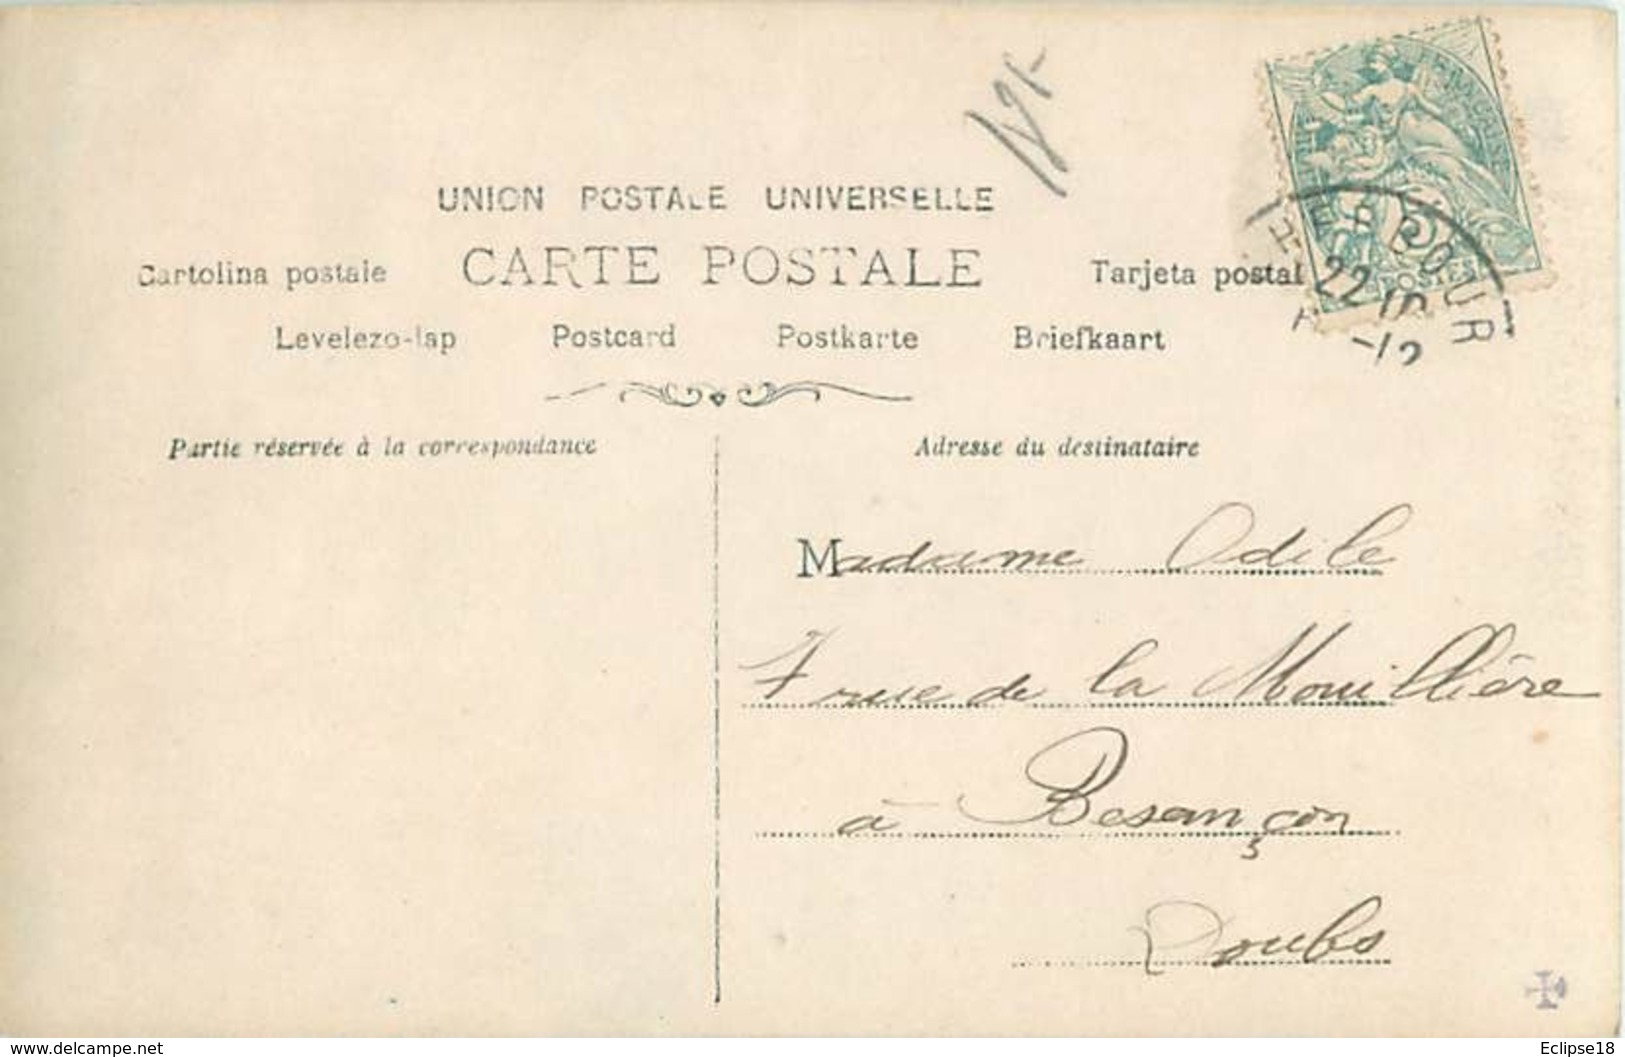 UNION POSTALE UNIVERSELLE
Cartolina postale CARTE POSTALE Tarjeta postal
Levelezo-lap Postcard Postkarte Briefkaart
Partie réservée à la correspondance
Adresse du destinataire
POSTES
5
22
10
Madame Odile
7 rue de la Mouillère
à Besançon
Doubs
Eclipse18
www.delcampe.net